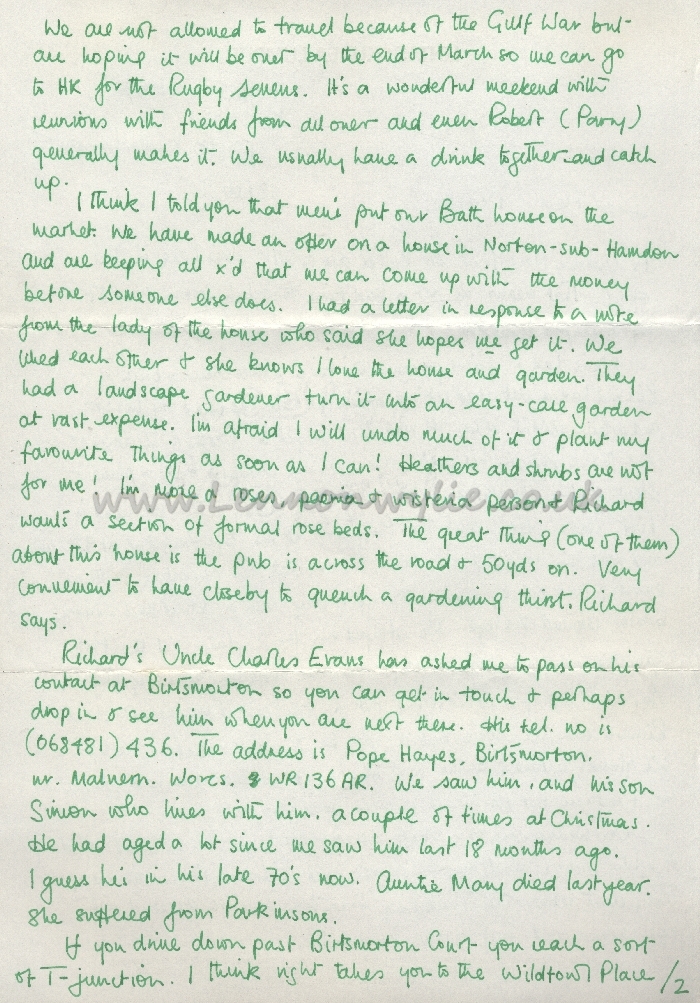 We are not allowed to travel because of the Gulf War but
are hoping it will be over by the end of March so we can go
to HK for the Rugby Sevens. It's a wonderful weekend with
reunions with friends from all over and even Robert (Parry)
generally makes it. We usually have a drink together and catch
up.
I think I told you that we've put our Bath house on the
market. We have made an offer on a house in Norton-sub-Hamdon
and are keeping all x'd that we can come up with the money
before someone else does. I had a letter in response to a note
from the lady of the house who said she hopes we get it. We
liked each other & she knows I love the house and garden. They
had a landscape gardener turn it into an easy-care garden
at vast expense. I'm afraid I will undo much of it & plant my
favourite things as soon as I can! Heathers and shrubs are not
for me! I'm more a roses, paeonia & wisteria person & Richard
wants a section of formal rose beds. The great thing (one of them)
about this house is the pub is across the road & 50yds on. Very
convenient to have closeby to quench a gardening thirst. Richard
says.
Richard's Uncle Charles Evans has asked me to pass on his
contact at Birtsmorton so you can get in touch & perhaps
drop in & see him when you are next there. His tel. no is
(068481) 436. The address is Pope Hayes, Birtsmorton,
nr. Malvern. Worcs. WR136AR. We saw him, and his son
Simon who lives with him, a couple of times at Christmas.
He had aged a lot since we saw him last 18 months ago.
I guess he's in his late 70's now. Auntie Mary died last year.
She suffered from Parkinsons.
If you drive down past Birtsmorton Court you reach a sort
of T-junction. I think right takes you to the Place /2
www.Lennonwylie.co.uk